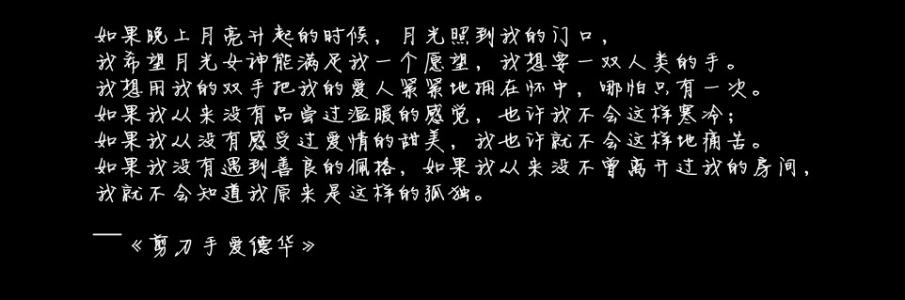 如果晚上月亮升起的时候，月光照到我的门口，
我希望月光女神能满足我一个愿望，我想要一双人类的手。
我想用我的双手把我的爱人紧紧地拥在怀中，哪怕只有一次。
如果我从来没有品尝过温暖的感觉，也许我不会这样寒冷；
如果我从没有感受过爱情的甜美，我也许就不会这样地痛苦。
如果我没有遇到善良的佩格，如果我从来没不曾离开过我的房间，
我就不会知道我原来是这样的孤独。
——《剪刀手爱德华》